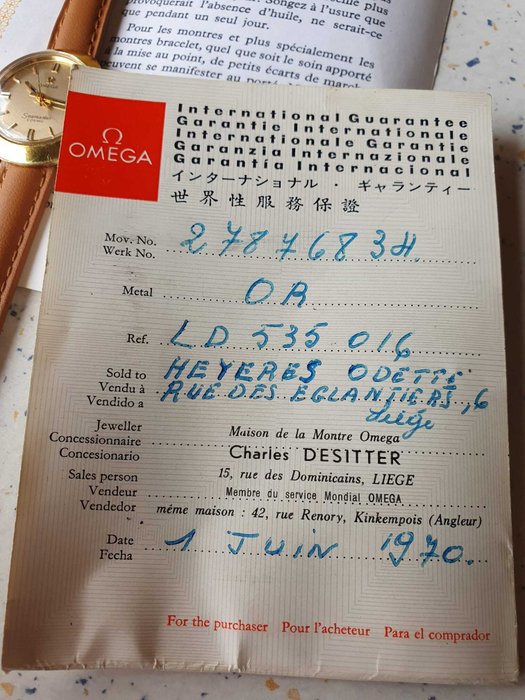 provoquerait l'absence d'huile, ne serait-ce
que pendant un seul jour.
Pour les montres et plus spécialement les
montres bracelet, quel que soit le soin apporté
à la mise au point, de petits écarts de march
peuvent se manifester au porté
Ω
OMEGA
International Guarantee
Garantie Internationale
Internationale Garantie
Garanzia Internazionale
Garantía Internacional
インターナショナル・ギャランティー
世界性服務保證
Mov. No.
Werk No.
27876834
Metal
OR
Ref.
LD 535 016
Sold to
Vendu à
Vendido a
HEYERES ODETTE
RUE DES EGLANTIERS, 6
Liége
Jeweller
Concessionnaire
Concesionario
Maison de la Montre Omega
Charles DESITTER
Sales person
Vendeur
Vendedor
15, rue des Dominicains, LIEGE
Membre du service Mondial OMEGA
même maison : 42, rue Renory, Kinkempois (Angleur)
Date
Fecha
1 JUIN 1970.
For the purchaser Pour l'acheteur Para el comprador